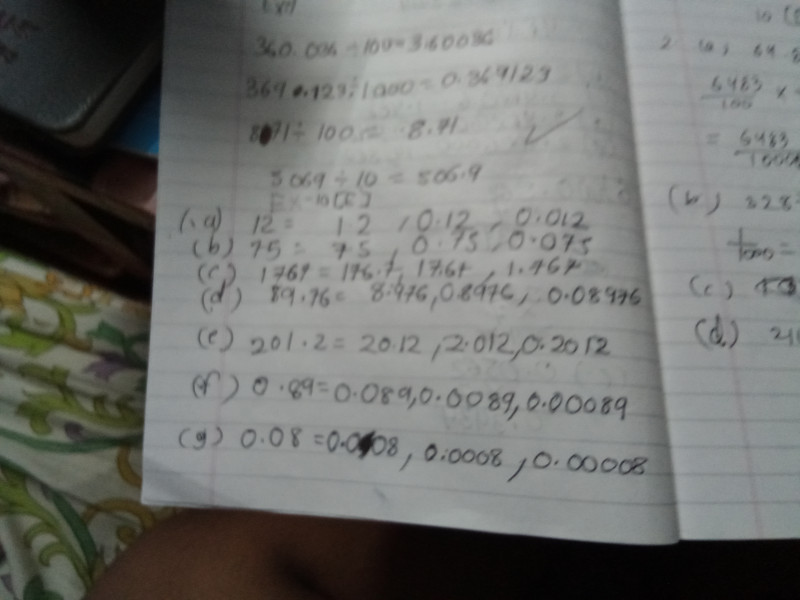 360.086 ÷ 100 = 3.60086
369.123 ÷ 1000 = 0.369123
871 ÷ 100 = 8.71
5069 ÷ 10 = 506.9
Ex-10(C)
1.a) 12 = 1.2 , 0.12 , 0.012
(b) 75 = 7.5 , 0.75 , 0.075
(c) 1767 = 176.7, 17.67 , 1.767
(d) 89.76 = 8.976, 0.8976, 0.08976
(e) 201.2 = 20.12 , 2.012, 0.2012
(f) 0.89 = 0.089, 0.0089, 0.00089
(g) 0.08 = 0.008 , 0.0008 , 0.00008
2 (a) 64.8
6483/100 ×
= 6483/1000
(b) 328
1/1000 =
(c)
(d)